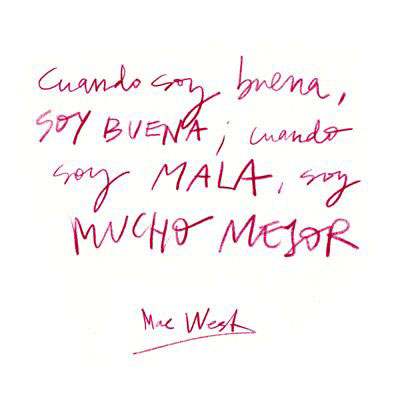 Cuando soy buena,
SOY BUENA; cuando
soy MALA, soy
MUCHO MEJOR
Mae West